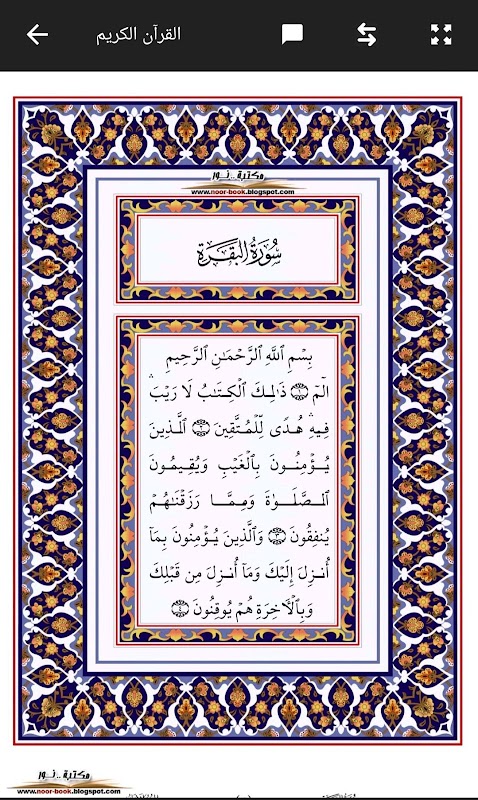 القرآن الكريم
مكتبة .. نور
www.noor-book.blogspot.com
سُورَةُ البَقَرَةِ
بِسۡمِ ٱللَّهِ ٱلرَّحۡمَٰنِ ٱلرَّحِيمِ
الٓمٓ ١ ذَٰلِكَ ٱلۡكِتَٰبُ لَا رَيۡبَۛ
فِيهِۛ هُدٗى لِّلۡمُتَّقِينَ ٢ ٱلَّذِينَ
يُؤۡمِنُونَ بِٱلۡغَيۡبِ وَيُقِيمُونَ
ٱلصَّلَوٰةَ وَمِمَّا رَزَقۡنَٰهُمۡ
يُنفِقُونَ ٣ وَٱلَّذِينَ يُؤۡمِنُونَ بِمَآ
أُنزِلَ إِلَيۡكَ وَمَآ أُنزِلَ مِن قَبۡلِكَ
وَبِٱلۡأٓخِرَةِ هُمۡ يُوقِنُونَ ٤
مكتبة .. نور
www.noor-book.blogspot.com